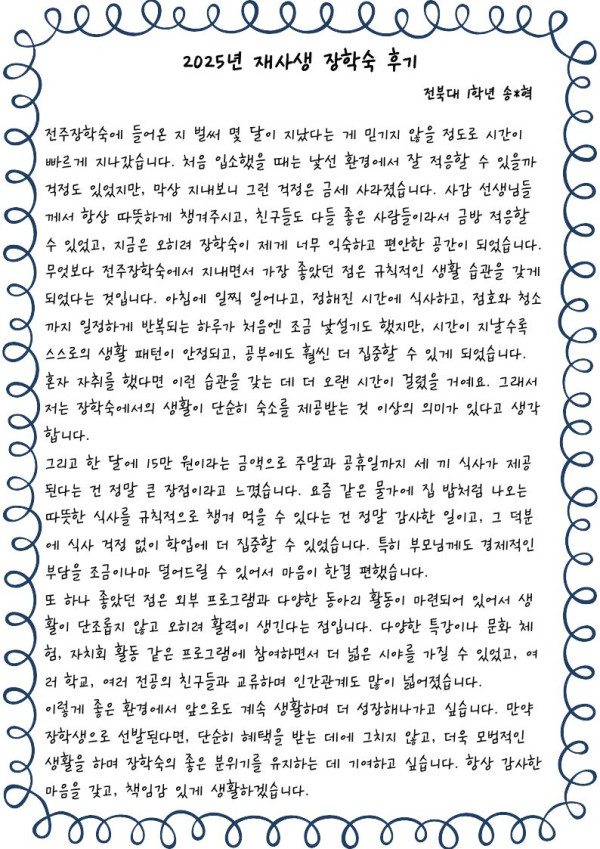 2025년 재사생 장학숙 후기
전북대 1학년 송*혁
전주장학숙에 들어온 지 벌써 몇 달이 지났다는 게 믿기지 않을 정도로 시간이
빠르게 지나갔습니다. 처음 입소했을 때는 낯선 환경에서 잘 적응할 수 있을까
걱정도 있었지만, 막상 지내보니 그런 걱정은 금세 사라졌습니다. 사감 선생님들
께서 항상 따뜻하게 챙겨주시고, 친구들도 다들 좋은 사람들이라서 금방 적응할
수 있었고, 지금은 오히려 장학숙이 제게 너무 익숙하고 편안한 공간이 되었습니다.
무엇보다 전주장학숙에서 지내면서 가장 좋았던 점은 규칙적인 생활 습관을 갖게
되었다는 것입니다. 아침에 일찍 일어나고, 정해진 시간에 식사하고, 점호와 청소
까지 일정하게 반복되는 하루가 처음엔 조금 낯설기도 했지만, 시간이 지날수록
스스로의 생활 패턴이 안정되고, 공부에도 훨씬 더 집중할 수 있게 되었습니다.
혼자 자취를 했다면 이런 습관을 갖는 데 더 오랜 시간이 걸렸을 거예요. 그래서
저는 장학숙에서의 생활이 단순히 숙소를 제공받는 것 이상의 의미가 있다고 생각
합니다.
그리고 한 달에 15만 원이라는 금액으로 주말과 공휴일까지 세 끼 식사가 제공
된다는 건 정말 큰 장점이라고 느꼈습니다. 요즘 같은 물가에 집 밥처럼 나오는
따뜻한 식사를 규칙적으로 챙겨 먹을 수 있다는 건 정말 감사한 일이고, 그 덕분
에 식사 걱정 없이 학업에 더 집중할 수 있었습니다. 특히 부모님께도 경제적인
부담을 조금이나마 덜어드릴 수 있어서 마음이 한결 편했습니다.
또 하나 좋았던 점은 외부 프로그램과 다양한 동아리 활동이 마련되어 있어서 생
활이 단조롭지 않고 오히려 활력이 생긴다는 점입니다. 다양한 특강이나 문화 체
험, 자치회 활동 같은 프로그램에 참여하면서 더 넓은 시야를 가질 수 있었고, 여
러 학교, 여러 전공의 친구들과 교류하며 인간관계도 많이 넓어졌습니다.
이렇게 좋은 환경에서 앞으로도 계속 생활하며 더 성장해나가고 싶습니다. 만약
장학생으로 선발된다면, 단순히 혜택을 받는 데에 그치지 않고, 더욱 모범적인
생활을 하며 장학숙의 좋은 분위기를 유지하는 데 기여하고 싶습니다. 항상 감사한
마음을 갖고, 책임감 있게 생활하겠습니다.